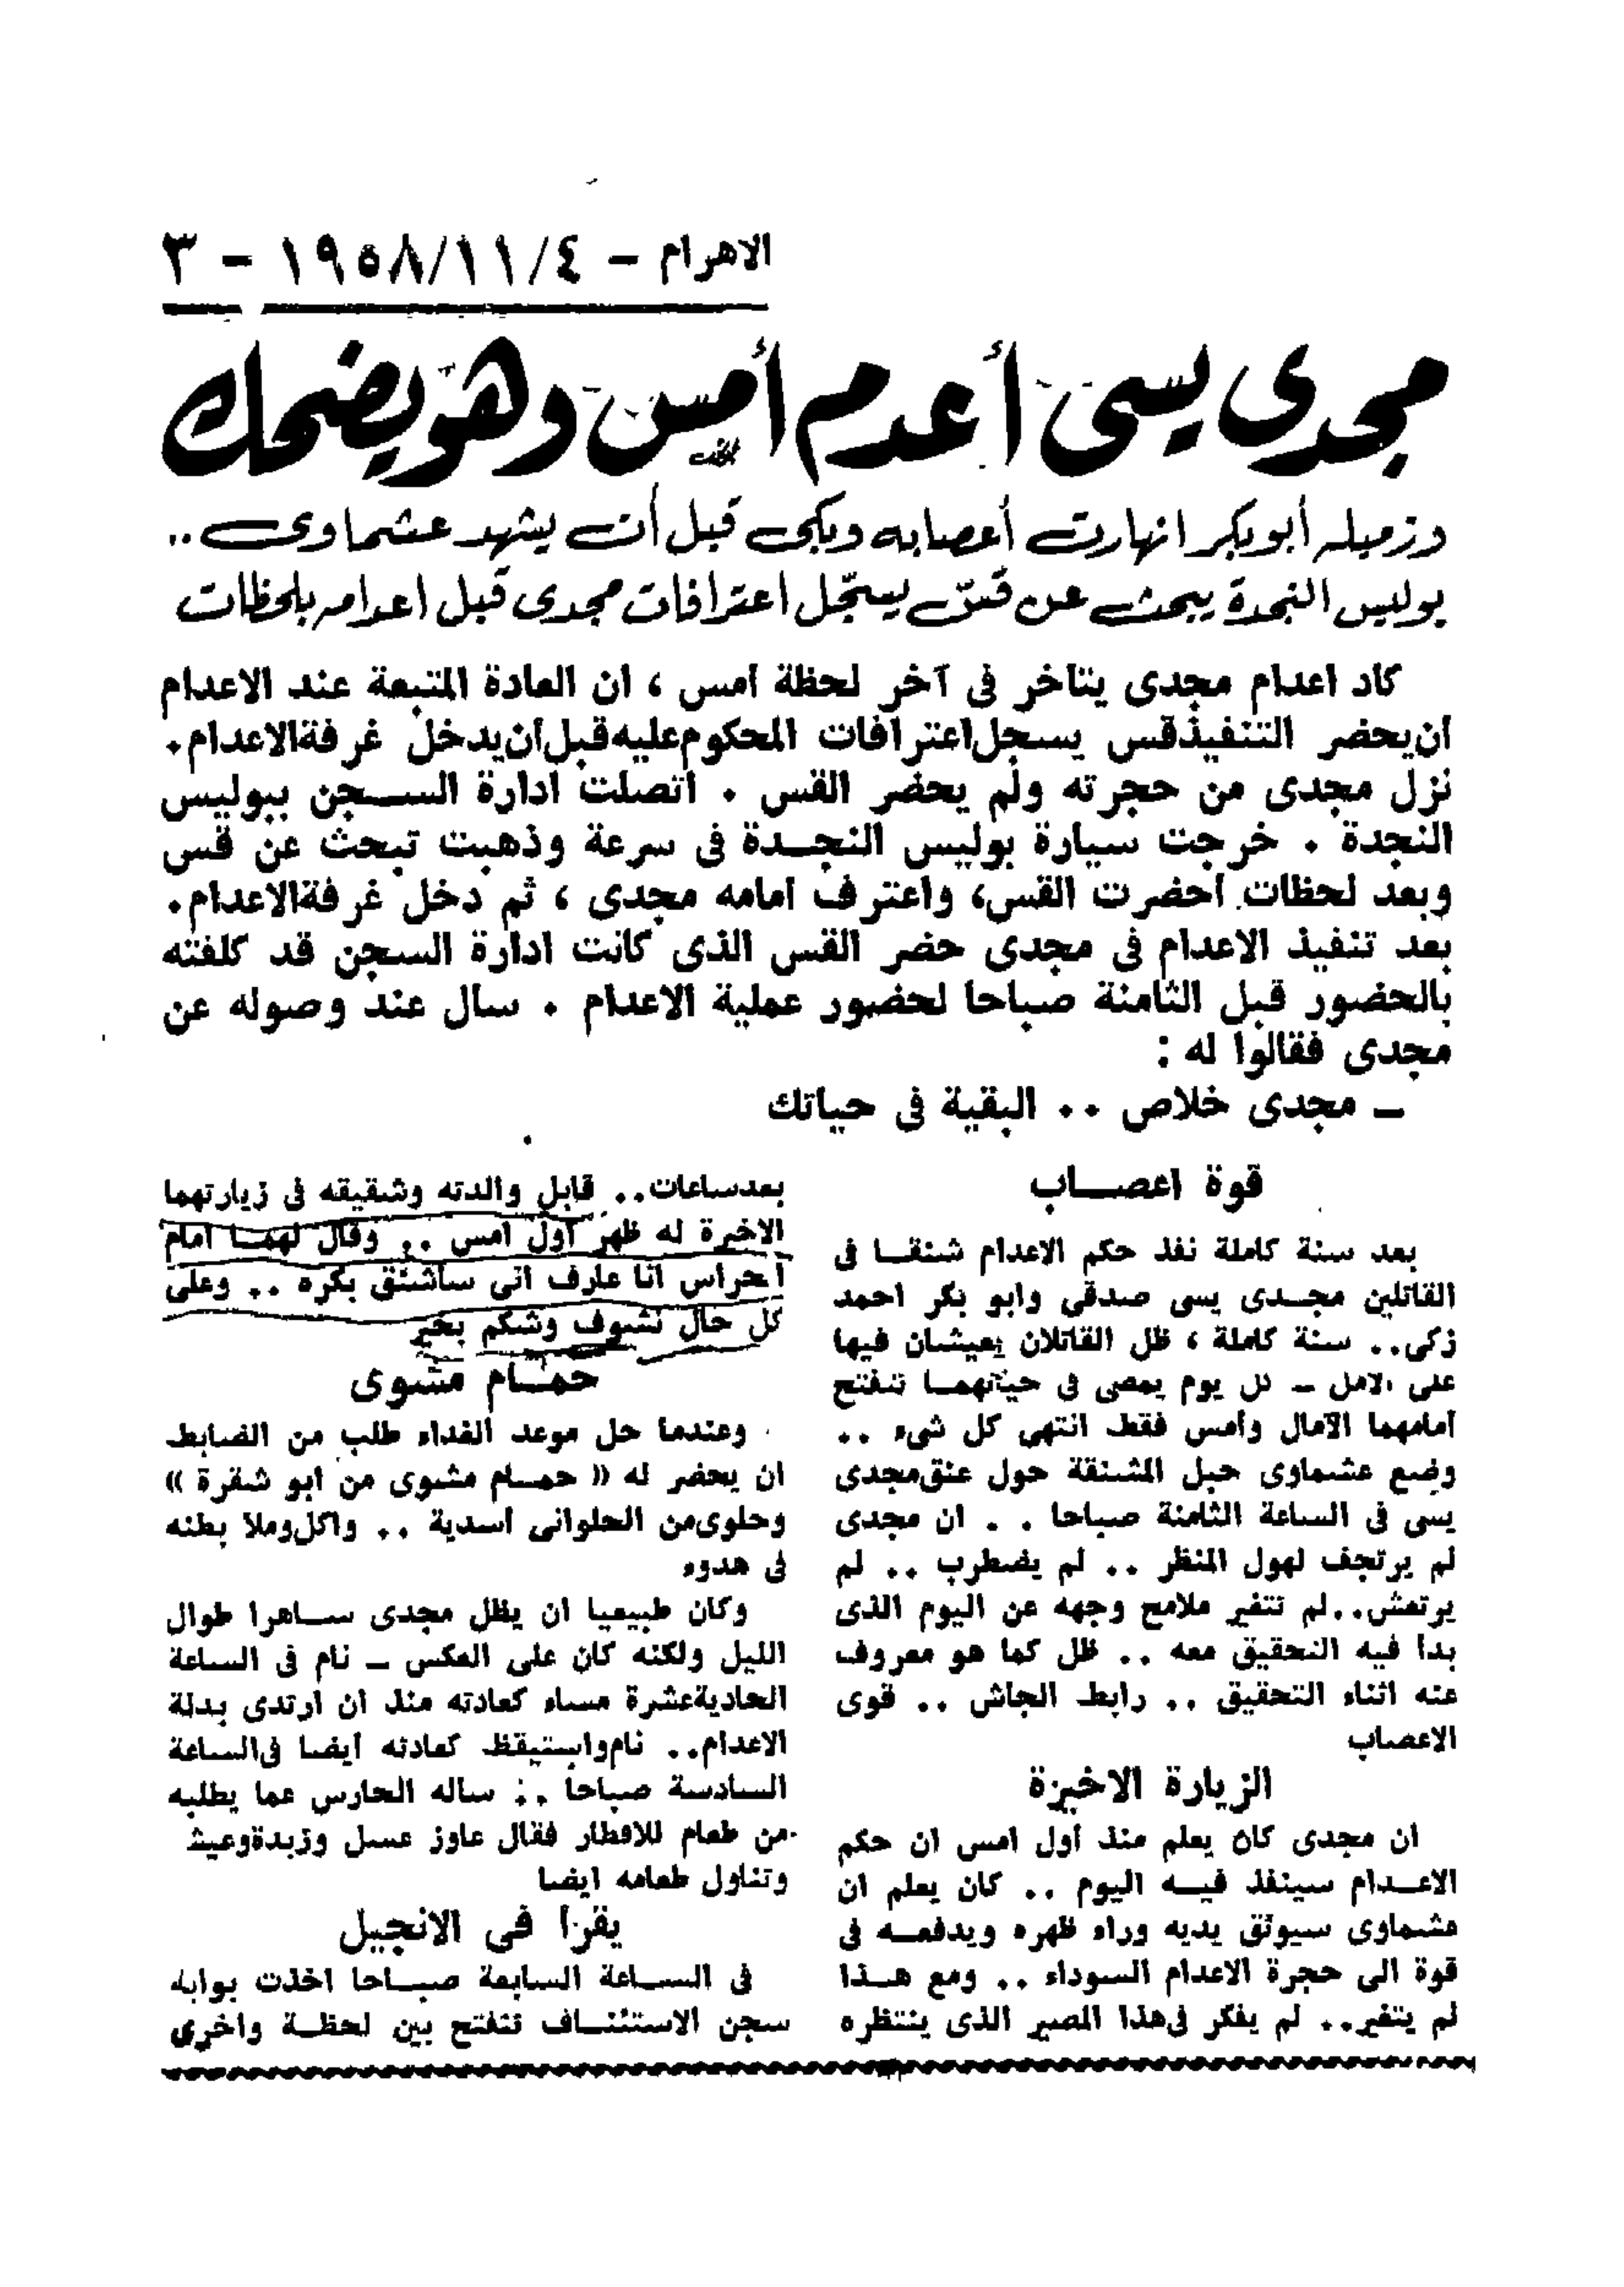 الاهرام - ٤/١١/١٩٥٨ - ٣
مجدى يسى أعدم أمس وهو يضحك
وزميله أبو بكر انهارت أعصابه وبكى قبل أن يشهد عشماوى..
بوليس النجدة يبحث عن قس يسجّل اعترافات مجدى قبل اعدامه بلحظات
كاد اعدام مجدى يتأخر فى آخر لحظة أمس ، ان العادة المتبعة عند الاعدام
أن يحضر التنفيذ قس يسجل اعترافات المحكوم عليه قبل أن يدخل غرفة الاعدام .
نزل مجدى من حجرته ولم يحضر القس . اتصلت ادارة الســجن ببوليس
النجدة . خرجت سيارة بوليس النجــدة فى سرعة وذهبت تبحث عن قس
وبعد لحظات أحضرت القس، واعترف أمامه مجدى ، ثم دخل غرفة الاعدام .
بعد تنفيذ الاعدام فى مجدى حضر القس الذى كانت ادارة السجن قد كلفته
بالحضور قبل الثامنة صباحا لحضور عملية الاعدام . سأل عند وصوله عن
مجدى فقالوا له :
ـ مجدى خلاص .. البقية فى حياتك
قوة اعصــاب
بعد سنة كاملة نفذ حكم الاعدام شنقــا فى
القاتلين مجــدى يسى صدقى وابو بكر احمد
زكى.. سنة كاملة ، ظل القاتلان يعيشان فيها
على الامل ـ كل يوم يمضى فى حياتهمــا تتفتح
أمامهما الآمال وأمس فقط انتهى كل شىء ..
وضع عشماوى حبل المشنقة حول عنق مجدى
يسى فى الساعة الثامنة صباحا . . ان مجدى
لم يرتجف لهول المنظر .. لم يضطرب .. لم
يرتعش..لم تتغير ملامح وجهه عن اليوم الذى
بدأ فيه التحقيق معه .. ظل كما هو معروف
عنه اثناء التحقيق .. رابط الجأش .. قوى
الاعصاب
الزيارة الاخيرة
ان مجدى كان يعلم منذ أول امس ان حكم
الاعــدام سينفذ فيــه اليوم .. كان يعلم ان
عشماوى سيوثق يديه وراء ظهره ويدفعــه فى
قوة الى حجرة الاعدام السوداء .. ومع هــذا
لم يتغير.. لم يفكر فى هذا المصير الذى ينتظره
بعد ساعات.. قابل والدته وشقيقه فى زيارتهما
الاخيرة له ظهر أول امس .. وقال لهمــا أمام
الحراس أنا عارف انى سأشنق بكره .. وعلى
كل حال نشوف وشكم بخير
حمــام مشوى
وعندما حل موعد الغداء طلب من الضابط
ان يحضر له « حمــام مشوى من أبو شقرة »
وحلوى من الحلوانى أسدية .. وأكل وملأ بطنه
فى هدوء
وكان طبيعيا ان يظل مجدى ســاهرا طوال
الليل ولكنه كان على العكس ـ نام فى الساعة
الحادية عشرة مساء كعادته منذ ان ارتدى بدلة
الاعدام.. نام واستيقظ كعادته ايضا فى الساعة
السادسة صباحا .. سأله الحارس عما يطلبه
من طعام للافطار فقال عاوز عسل وزبدة وعيش
وتناول طعامه ايضا
يقرأ فى الانجيل
فى الســاعة السابعة صبــاحا اخذت بوابة
سجن الاستئنــاف تتفتح بين لحظــة واخرى